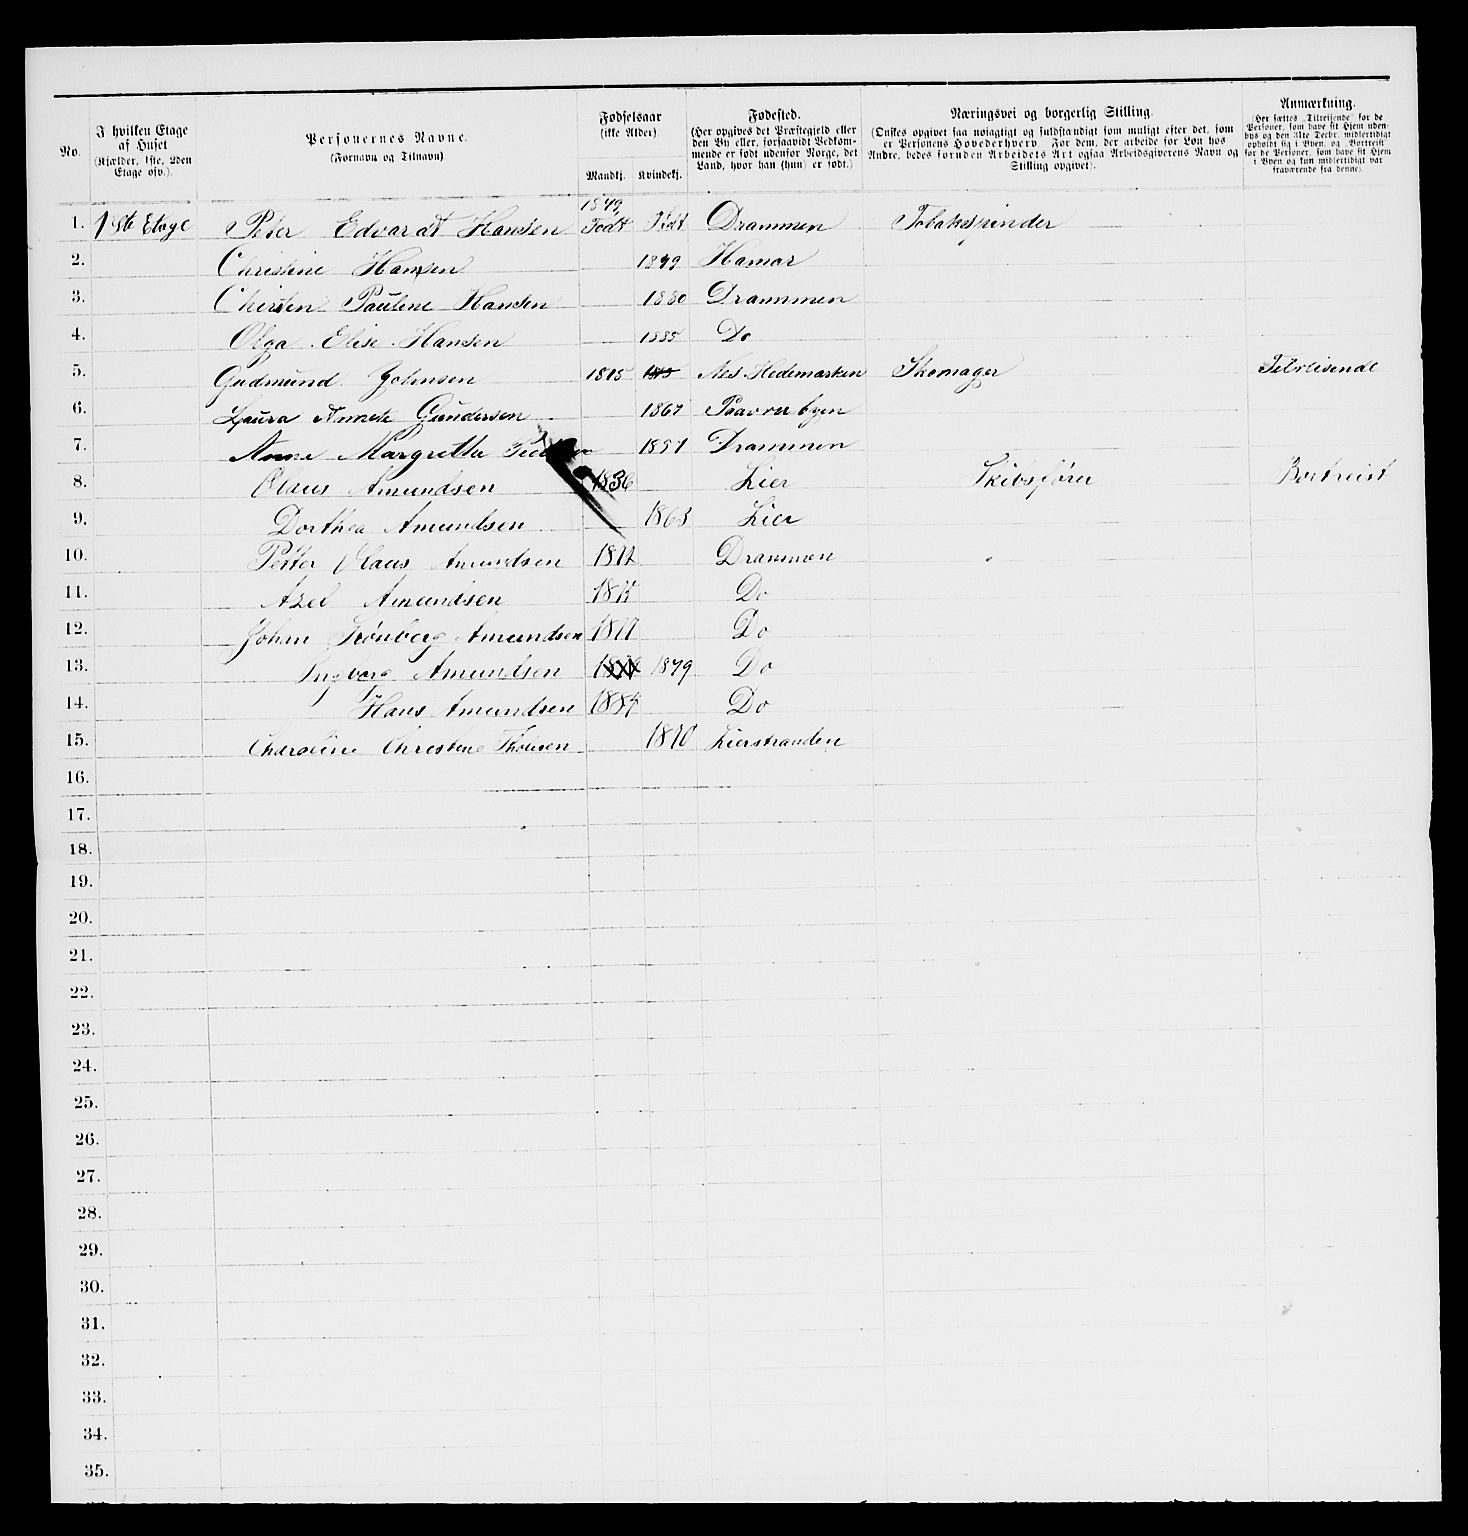 No.
I hvilken Etage
af Huset
(Kjælder, 1ste, 2den
Etage osv.).
Personernes Navne.
(Fornavn og Tilnavn).
Fødselsaar
(ikke Alder).
Mandkj. Kvindekj.
Fødested.
(Her opgives det Præstegjeld eller
den By eller, forsaavidt Vedkom-
mende er født udenfor Norge, det
Land, hvor han (hun) er født.)
Næringsvei og borgerlig Stilling.
(Ønskes opgivet saa nøiagtigt og fuldstændigt som muligt efter det, som
er Personens Hovederhverv. For dem, der arbeide for Løn hos
Andre, bedes foruden Arbeidets Art ogsaa Arbeidsgiverens Navn og
Stilling opgivet).
Anmærkning.
(Her sættes „Tilreisende" for de
Personer, som have sit Hjem uden-
bys og den 31te Decbr. midlertidigt
opholdt sig i Byen, og „Bortreist"
for de Personer, som have sit Hjem
i Byen og kun midlertidigt var
fraværende fra denne).
1849
1. 1ste Etage Peter Edvardt Hansen Fodt Født Drammen Tobakspinder
2. Christine Hansen 1849 Hamar
3. Chirsten Pauline Hansen 1880 Drammen
4. Olga Elise Hansen 1885 Do
5. Gudmund Johnsen 1815 Nes Hedemarken Skomager Tilreisende
6. Laura Annete Gundersen 1867
7. Anne Margrethe 1857 Drammen
8. Claus Amundsen 1836 Lier Skibsfører Bortreist
9. Dorthea Amundsen 1863 Lier
10. Petter Claus Amundsen 1872 Drammen
11. Axel Amundsen Do
12. Johan Amundsen 1877 Do
13. Ingborg Amundsen 1879 Do
14. Hans Amundsen 1884 Do
15. Charoline Christine 1870 Lierstranden
16.
17.
18.
19.
20.
21.
22.
23.
24.
25.
26.
27.
28.
29.
30.
31.
32.
33.
34.
35.